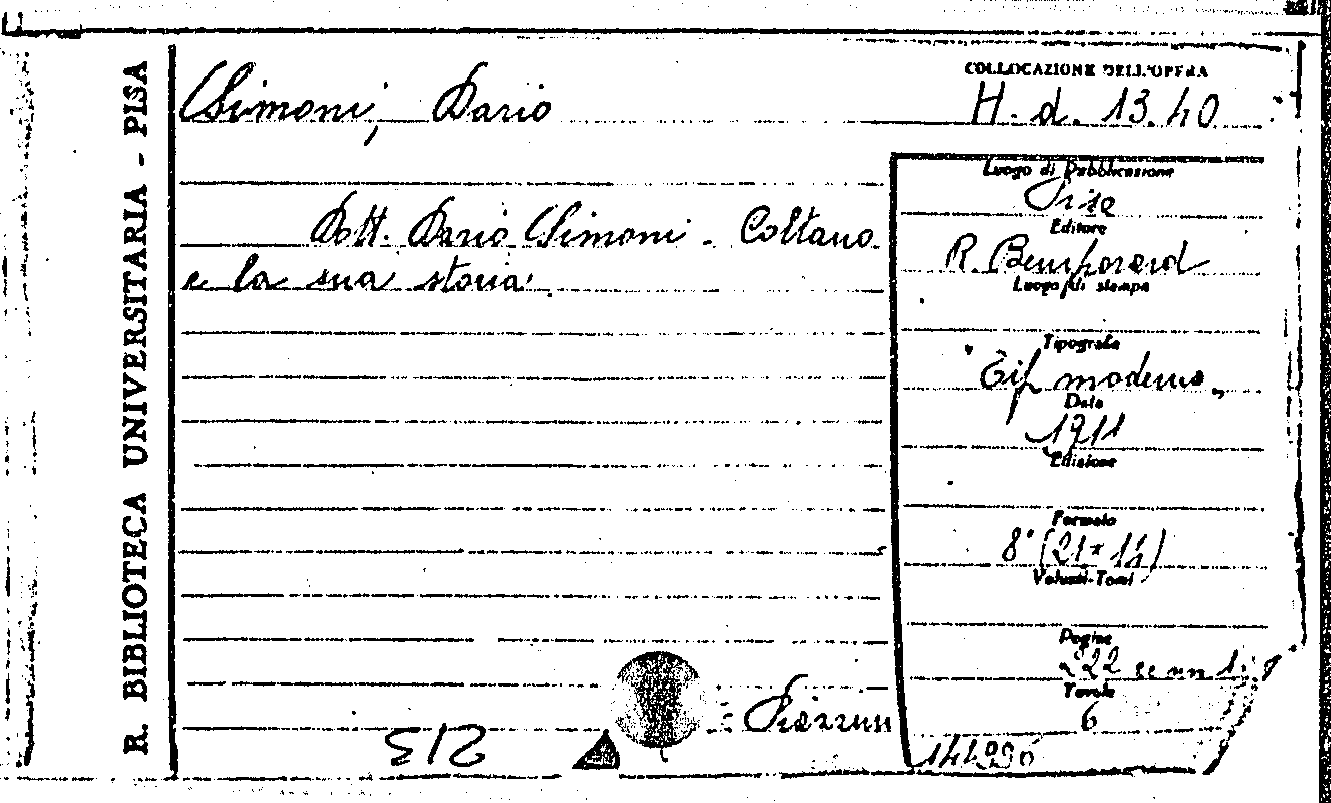 R. BIBLIOTECA UNIVERSITARIA - PISA
Simoni, Dario
COLLOCAZIONE DELL'OPERA
H. d. 13.40
Dott. Dario Simoni - Coltano
e la sua storia.
Luogo di Pubblicazione
Pisa
Editore
R. Bemporad
Luogo di stampa
Tipografia
Tip moderna
Data
1911
Edizione
Formato
8° (21 x 14)
Volumi-Tomi
Pagine
222
Tavole
6
213